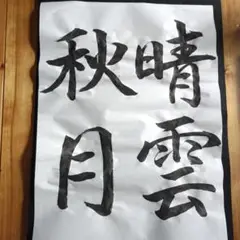 晴雲
秋月